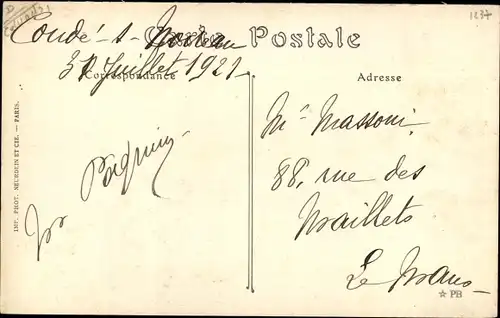 1237
Carte Postale
Condé-s-Noireau
31 Juillet 1921
Correspondance
Adresse
Mr Massoni
88, rue des
Maillets
Le Mans
IMP. PHOT. NEURDEIN ET CIE. — PARIS.
☆ PB